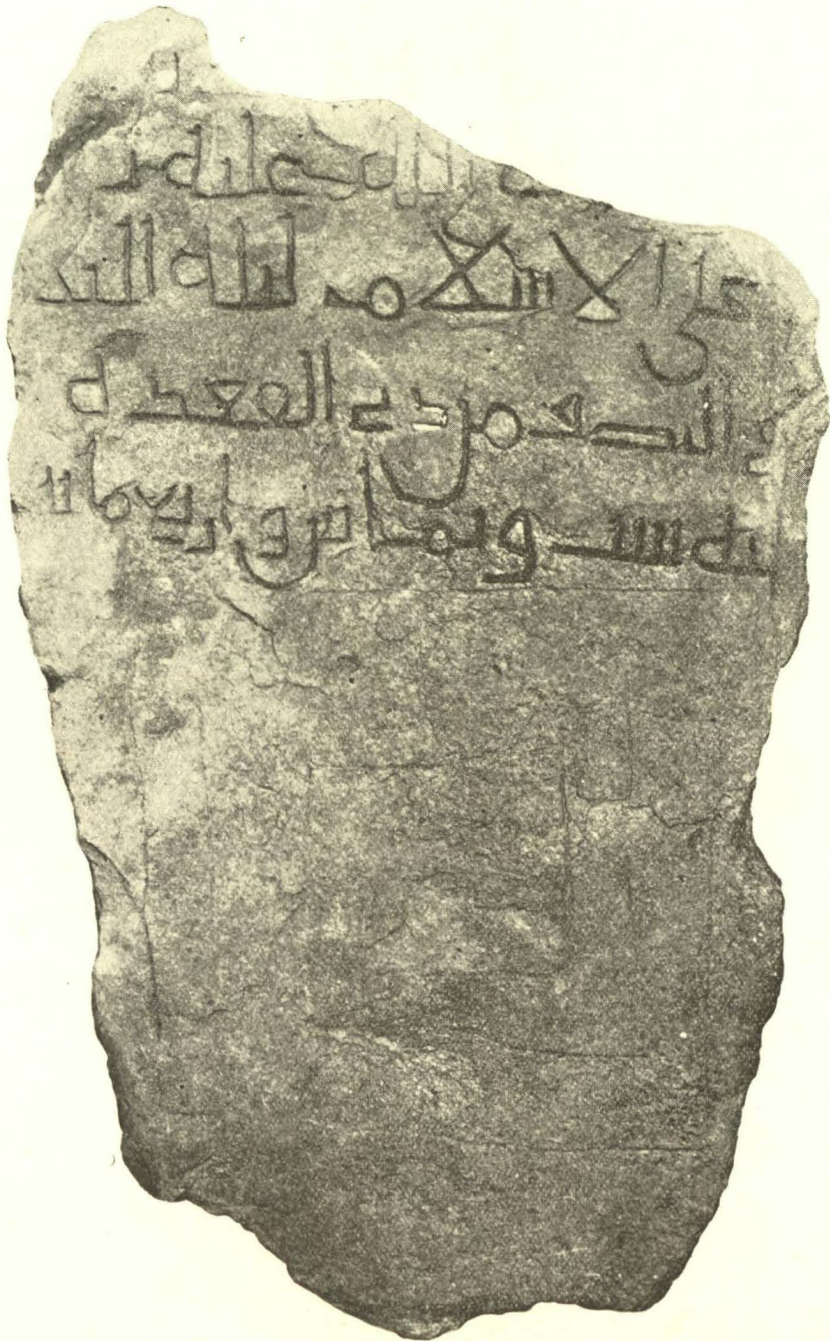 الله عليه
على الاسلام ليلة
النصف من ذي القعدة
سنة ست وثمانين واربعمائة